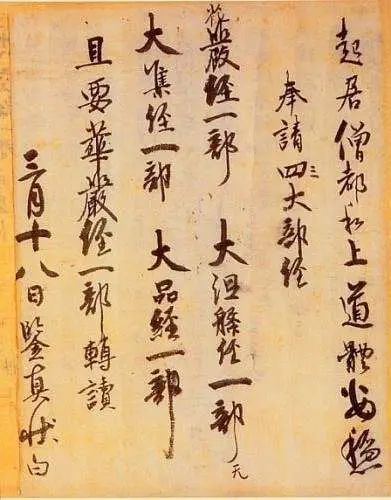 起居僧都和上道體安穩
奉請四三大部經
花嚴經一部　大涅槃經一部
大集經一部　大品經一部
且要華嚴經一部轉讀
三月十八日鑒真狀白